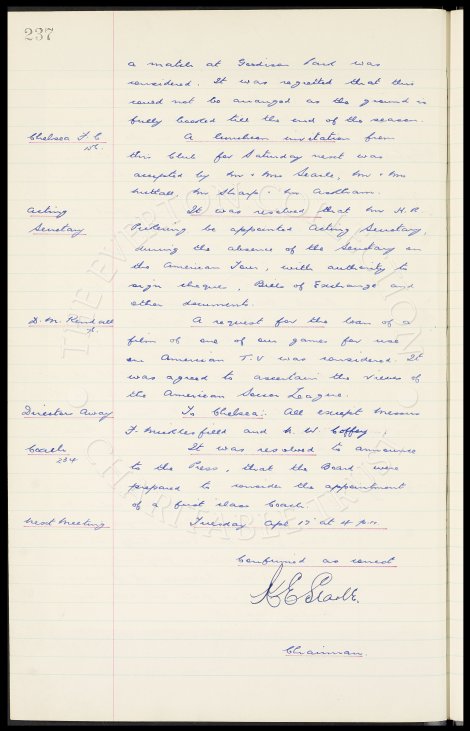 237
a match at Goodison Park was
considered. It was regretted that this
could not be arranged as the ground is
fully booked till the end of the season.
Chelsea F.C. A luncheon invitation from
this Club for Saturday next was
accepted by Mr & Mrs Searle, Mr & Mrs
Nuttall, Mr Sharp & Mr
Acting It was resolved that Mr H. R.
Secretary Pickering be appointed Acting Secretary,
during the absence of the Secretary on
the American Tour, with authority to
sign cheques, Bills of Exchange and
other documents.
D. M. Rendall A request for the loan of a
film of one of our games for use
on American T.V was considered. It
was agreed to ascertain the views of
the American Soccer League.
Director Away To Chelsea: All except Messrs
F. Micklesfield and N. W. Coffey.
Coach It was resolved to announce
234 to the Press, that the Board were
prepared to consider the appointment
of a first class Coach.
Next Meeting Tuesday Apl 17 at 4 p.m.
Confirmed as correct
Chairman.
THE EVERTON COLLECTION
CHARITABLE TRUST